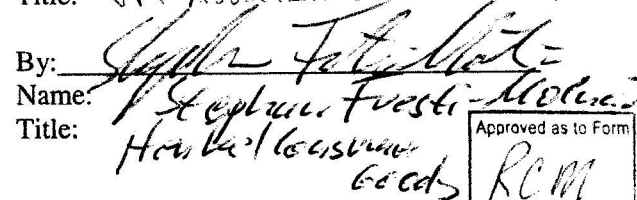 Title:
By:
Name: Stephan Fuesti-Molnar
Title: Henkel Consumer
Goods
Approved as to Form
RCM